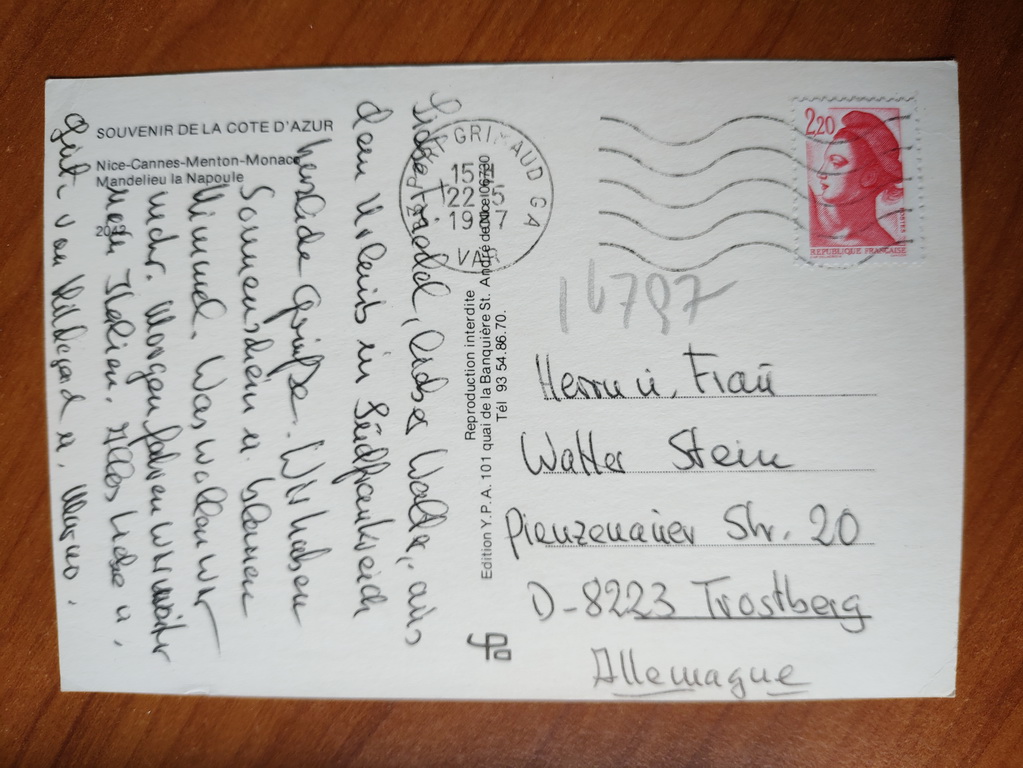 SOUVENIR DE LA COTE D'AZUR
Nice-Cannes-Menton-Monaco
Mandelieu la Napoule
2042
Liebe Friedel, lieber Walter, aus
dem Urlaub in Südfrankreich
herzliche Grüße. Wir haben
Sonnenschein u. blauen
Himmel. Was wollen wir
mehr. Morgen fahren wir weiter
nach Italien. Alles Liebe u.
Gute von Hildegard u.
Edition Y.P.A. 101 quai de la Banquière St. André de Nice 06730
Reproduction interdite
Tél 93 54.86.70.
PORT GRIMAUD GA
22-5
VAR
2,20
REPUBLIQUE FRANÇAISE
16787
Herrn u. Frau
Walter Stein
Pienzenauer Str. 20
D-8223 Trostberg
Allemagne